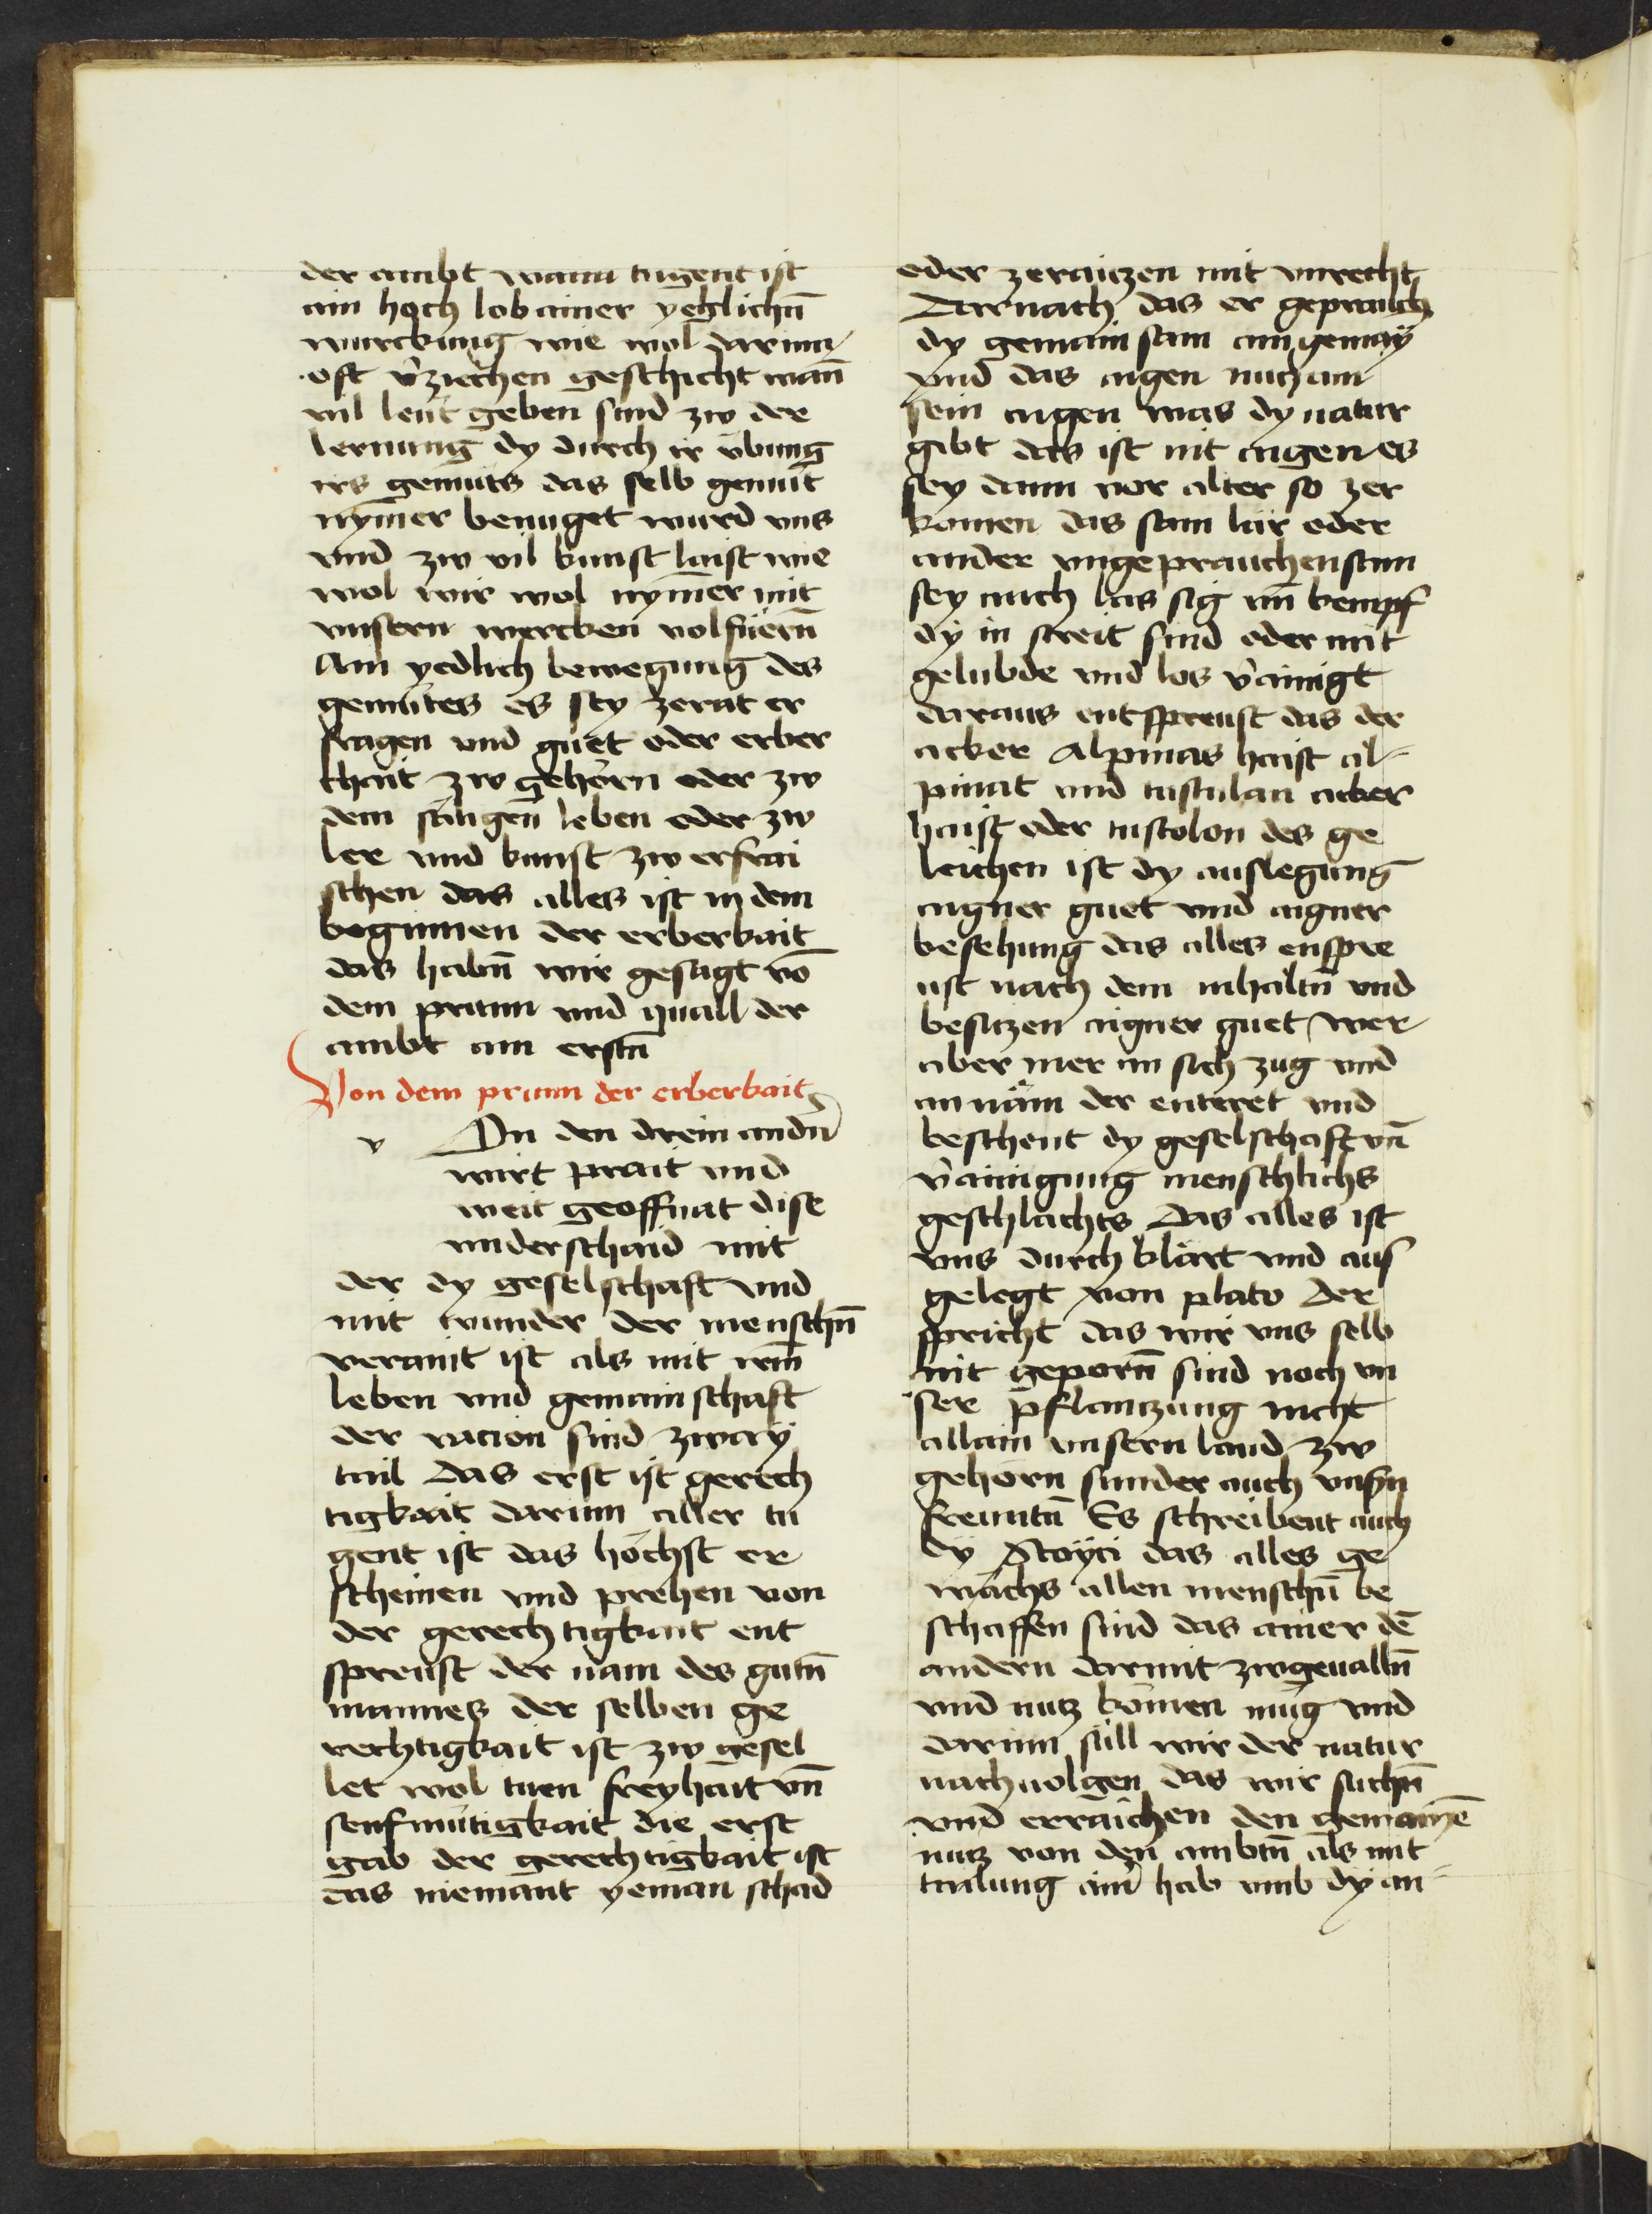 der ambt wann tugent ist
ain hoch lob ainer yeglichn̄
wurckung wie wol darinn
oft v̉ziechen geschicht wan̄
vil leut geben sind zw der
lernung dy durch ir v̈bung
irs gemüts das selb gemüt
nym̄er benüget wurd vns
vnd zw vil kunst laist wie
wol wir wol nym̄er mit
vnsern wercken volfüern̄
Ain yedlich bewegung des
gemütes es sey zerat er
fragen vnd guet oder erber
chait zw gehörn oder zw
dem säligen leben oder zw
ler vnd kunst zw erfrai
schen das alles ist in dem
beginnen der erberkait
das habn̄ wir gesagt vō
dem prunn vnd quall der
ambt am erstn̄
Von dem prunn der erberkait
v In den drein andn̄
wirt prait vnd
weit geoffnat dise
vnderschaid mit
der dy geselschaft vnd
mit wunder der menschn̄
veraint ist als mit irm̄
leben vnd gemainschaft
der racion sind zway
tail Das erst ist gerech
tigkait darinn aller tu
gent ist das höchst er
scheinen vnd prehen von
der gerechtigkait ent
spreust der nam des gutn̄
mannes der selben ge
rechtigkait ist zw gesel
let wol tuen freyhait vn̄
senfmütigkait die erst
gab der gerechtigkait ist
das niemant yeman schad
oder zeraitzen mit vnrecht
Darnach das er geprauch
dy gemainsam ain gemay
vnd das aigen nutz am
sein aigen was dy natur
gibt das ist nit aigen es
sey dann vor alter so zer
komen das sam lär oder
ander vngeprauchensam
sey auch las sig vn̄ kempf
dy in streit sind oder mit
gelubde vnd los v̉ainigt
daraus entspreust das der
acker Alpinas haist al-
pinat vnd tustulan acker
haist oder tustolon des ge
leichen ist dy auslegung
aigner guet vnd aigner
besehung das alles enspre
ust nach dem inhaltn̄ vnd
besitzen aigner guet wer
aber mer an sich zug vnd
an näm der enteret vnd
beschent dy geselschaft vn̄
v̉ainigung menschlichs
geschlächts Das alles ist
vns durch klärt vnd aus
gelegt von plato Der
spricht das wir vns selb
nit geporn̄ sind noch vn
ser pflanczung nicht
allain vnsern land zw
gehörn sunder auch vnsn̄
freuntn̄ Es schreibent auch
dy Stoyci das alles ge
wächs allen menschn̄ be
schaffen sind das ainer dē
andern darmit zwgeualln̄
vnd nutz kömen müg vnd
darinn süll wir der natur
nachuolgen das wir suchn̄
vnd erraichen den gemainē
nutz von den ambtn̄ als mit
tailung ain̉ hab vmb dy an-